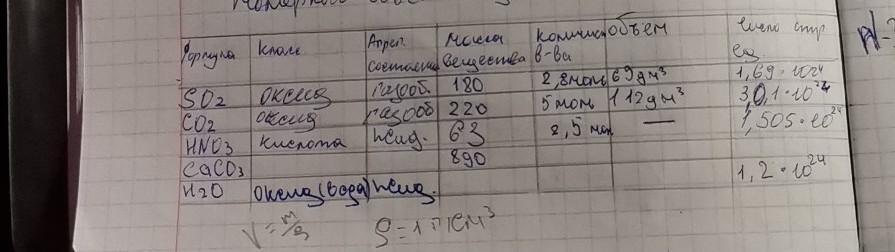 Формула Класс Агрег. состояние Масса вещества Количест в-ва объем Число стр ед.
SO2 оксид газооб. 180 2,8моль 69дм³ 1,69·10²⁴
CO2 оксид газооб 220 5моль 112дм³ 3,01·10²⁴
HNO3 кислота жид. 63 2,5 мол — 1,505·10²⁴
CaCO3 890
H2O оксид(вода) жид. 1,2·10²⁴
V=m/ρ ρ=1г/см³